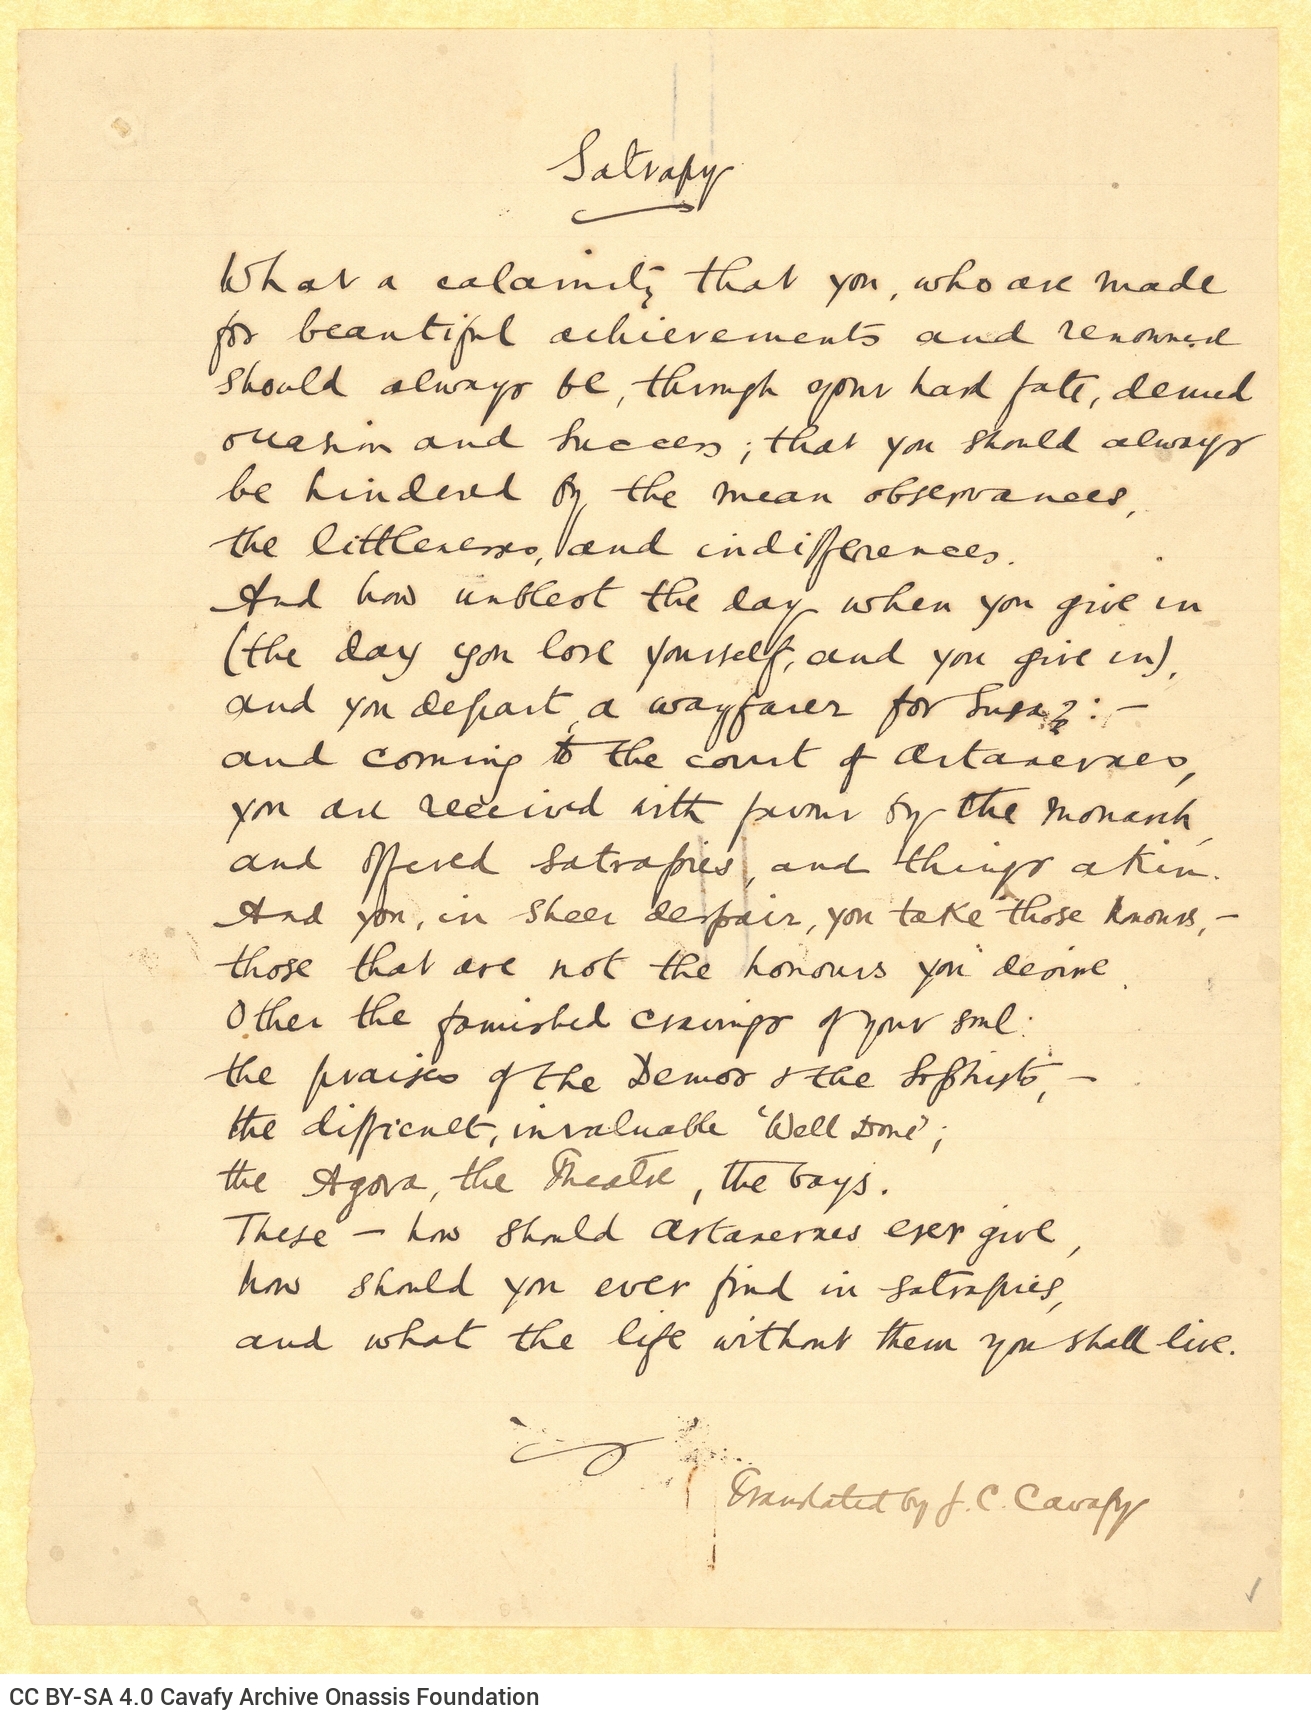 Satrapy
What a calamity that you, who are made
for beautiful achievements and renowned
should always be, through your hard fate, denied
occasion and success; that you should always
be hindered by the mean observances,
the littlenesses, and indifferences.
And how unblest the day when you give in
(the day you lose yourself, and you give in),
and you depart, a wayfarer for Susa: —
and coming to the court of Artaxerxes,
you are received with favour by the monarch,
and offered satrapies, and things akin.
And you, in sheer despair, you take those honours, —
those that are not the honours you desire.
Other the famished cravings of your soul:
the praises of the Demos & the Sophists, —
the difficult, invaluable 'Well Done';
the Agora, the Theatre, the bays.
These — how should Artaxerxes ever give,
how should you ever find in satrapies,
and what the life without them you shall live.
Translated by J. C. Cavafy
CC BY-SA 4.0 Cavafy Archive Onassis Foundation